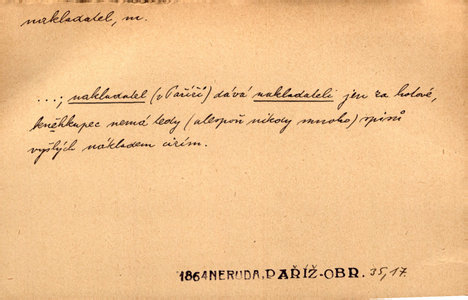 nakladatel, m.
...; nakladatel (v Paříži) dává nakladateli jen za hotové,
kněhkupec nemá tedy (alespoň nikdy mnoho) spisů
vyšlých nákladem cizím.
1864 NERUDA, PAŘÍŽ-OBR. 35,17